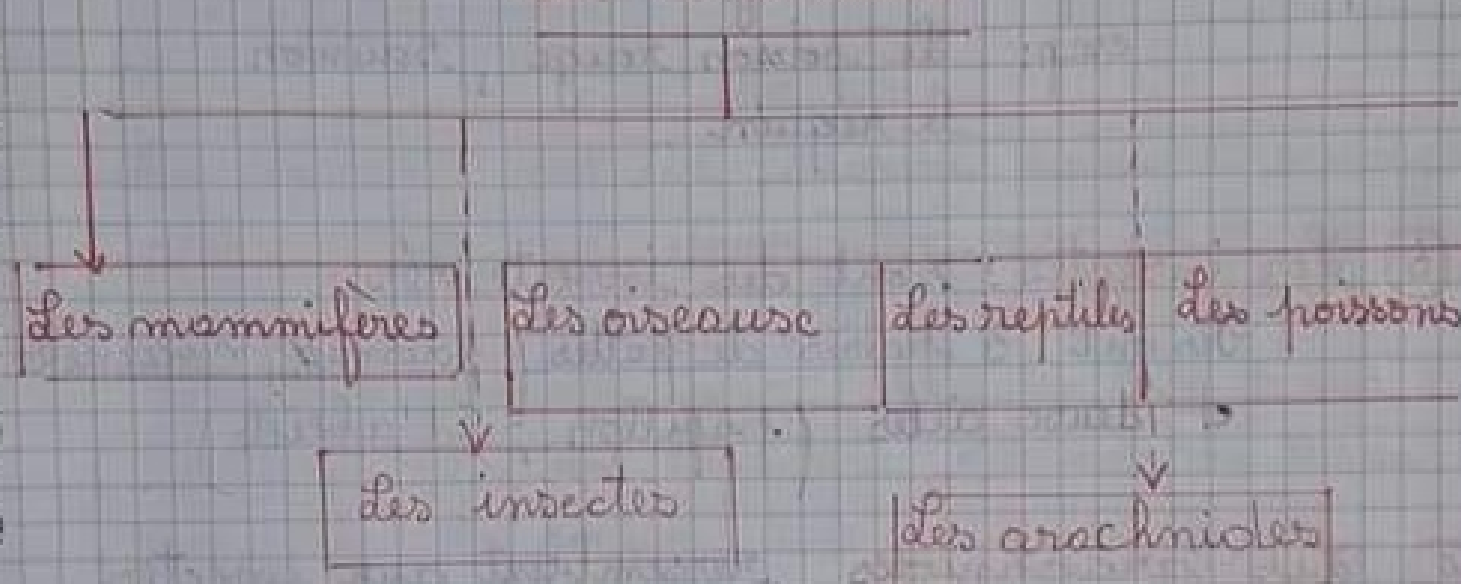 Les mammifères
Les oiseaux
Les reptiles
Les poissons
Les insectes
Les arachnides